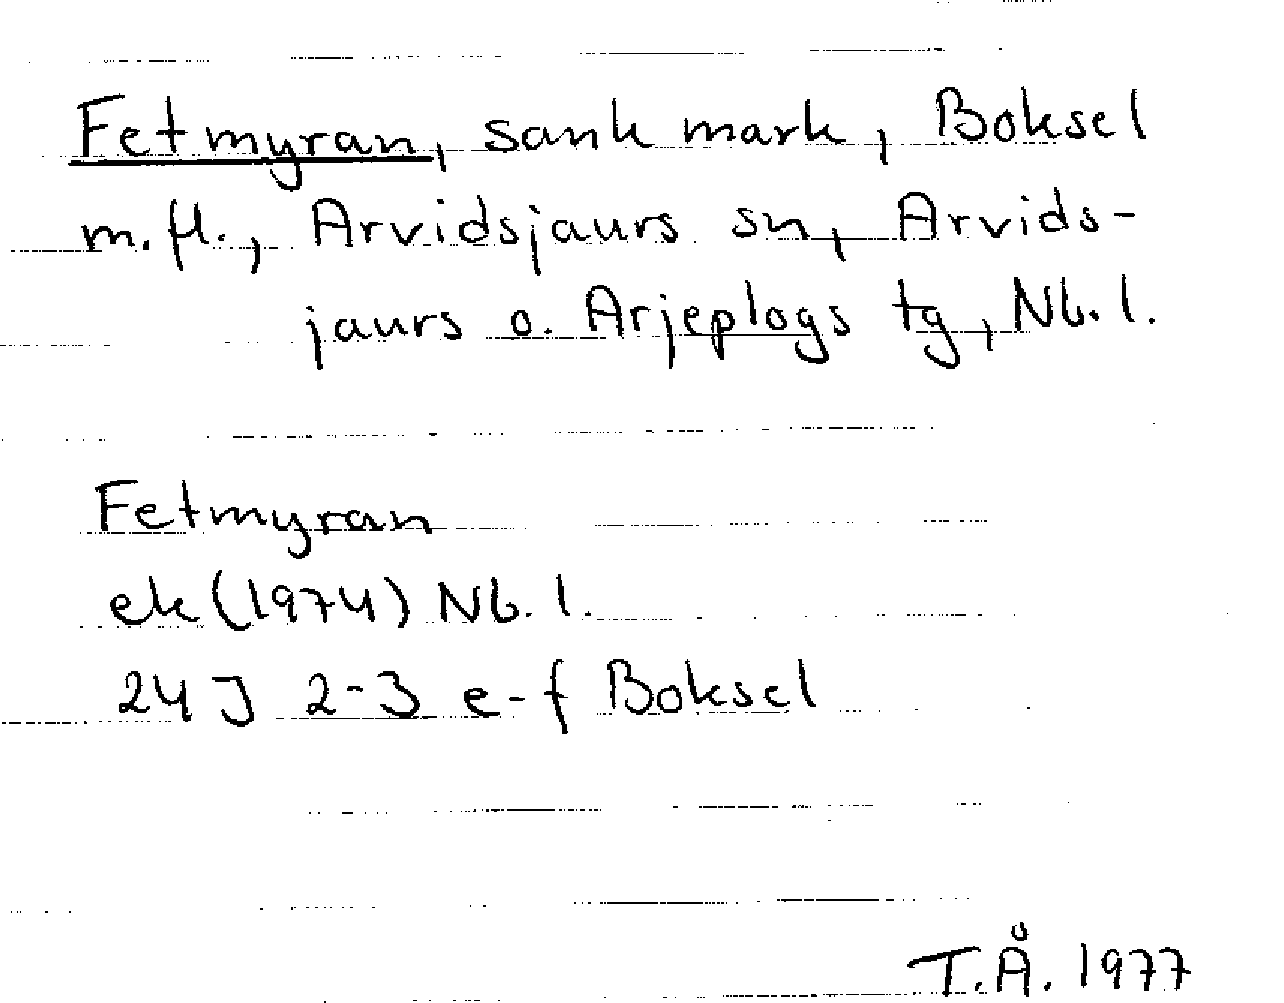 Fetmyran, sank mark, Boksel
m.fl., Arvidsjaurs sn, Arvids-
jaurs o. Arjeplogs tg, Nb.l.
Fetmyran
ek (1974) Nb.l.
24 J 2-3 e-f Boksel
T.Å. 1977